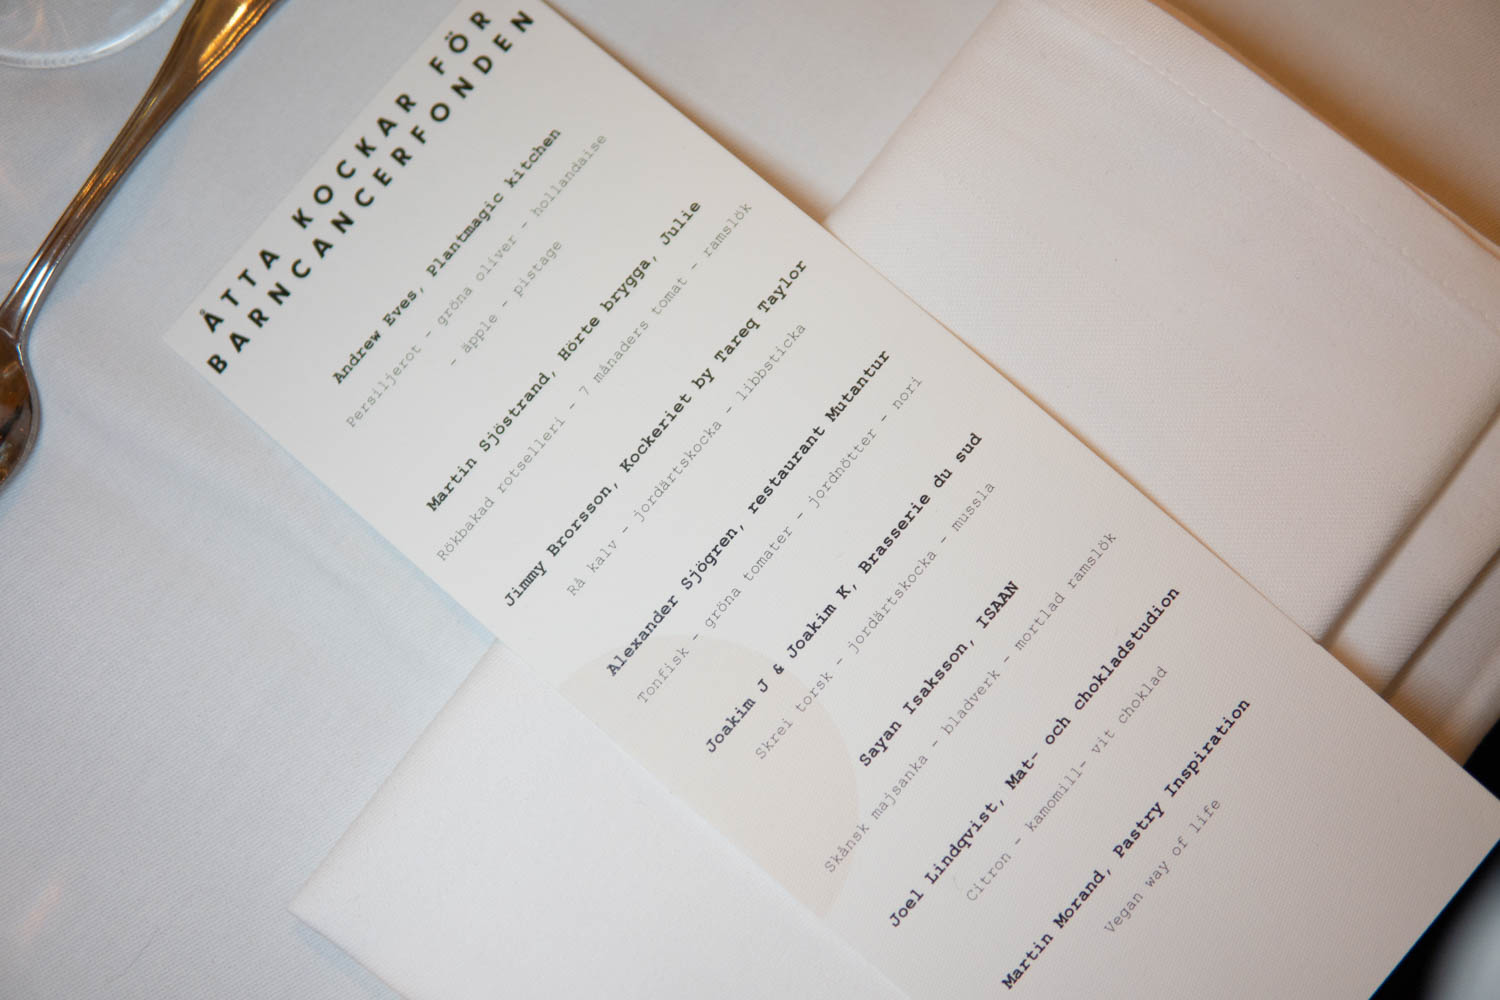 ÅTTA KOCKAR FÖR
BARNCANCERFONDEN
Andrew Eves, Plantmagic kitchen
Persiljerot - gröna oliver - hollandaise
- äpple - pistage
Martin Sjöstrand, Hörte brygga, Julie
Rökbakad rotselleri - 7 månaders tomat - ramslök
Jimmy Brorsson, Kockeriet by Tareq Taylor
Rå kalv - jordärtskocka - libbsticka
Alexander Sjögren, restaurant Mutantur
Tonfisk - gröna tomater - jordnötter - nori
Joakim J & Joakim K, Brasserie du sud
Skrei torsk - jordärtskocka - mussla
Sayan Isaksson, ISAAN
Skånsk majsanka - bladverk - mortlad ramslök
Joel Lindqvist, Mat- och chokladstudion
Citron - kamomill- vit choklad
Martin Morand, Pastry Inspiration
Vegan way of life